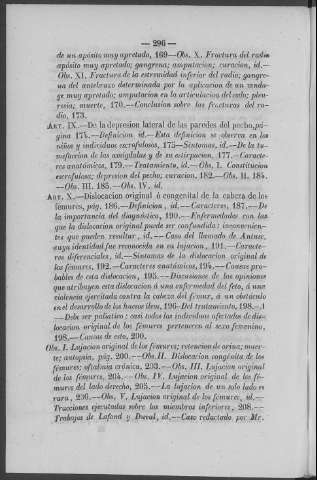 — 296 —
de un apósito muy apretado, 169—Obs. X. Fractura del radio
apósito muy apretado; gangrena; amputacion; curacion, id.—
Obs. XI. Fractura de la estremidad inferior del radio; gangre-
na del antebrazo determinada por la aplicacion de un venda-
ge muy apretado; amputacion en la articulacion del codo; pleu-
resia; muerte, 170.—Conclusion sobre las fracturas del ra-
dio, 173.
ART. IX.—De la depresion lateral de las paredes del pecho, pá-
gina 174.—Definicion id.—Esta definicion se observa en los
niños y individuos escrofulosos, 175—Sintomas, id.—De la tu-
mefaccion de las amígdalas y de su estirpacion, 177.—Caracte-
res anatómicos, 179.—Tratamiento, id.—Obs. I. Constitucion
escrofulosa; depresion del pecho; curacion, 182.—Obs. II. 184.
—Obs. III. 185.—Obs. IV. id.
ART. X.—Dislocacion original ó congenital de la cabeza de los
fémures, pág. 186.—Definicion, id.—Caracteres, 187.—De
la importancia del diagnóstico, 190.—Enfermedades con las
que la dislocacion original puede ser confundida: inconvenien-
tes que pueden resultar, id.—Caso del llamado de Antune,
cuya identidad fue reconocida en su lujacion, 191.—Caracte-
res diferenciales, id.—Síntomas de la dislocacion original de
los fémures, 192.—Caracteres anatómicos, 194.—Causas pro-
bables de esta dislocacion, 195.—Discusiones de las opiniones
que atribuyen esta dislocacion á una enfermedad del feto, á una
violencia ejercitada contra la cabeza del fémur, á un obstáculo
en el desarrollo de los huesos ileon, 196-Del tratamiento, 198.—
—Debe ser paliativo: casi todos los individuos afectados de dis-
locacion original de los fémures pertenecen al sexo femenino,
198.—Causas de esto, 200.
Obs. I. Lujacion original de los fémures; retencion de orina; muer-
te; autopsia, pág. 200.—Obs. II. Dislocacion congénita de los
fémures; oftalmia crónica, 203.—Obs. III. Lujacion original
de los fémures, 204.—Obs. IV. Lujacion original de los fé-
mures del lado derecho, 205.—La lujacion de un solo lado es
rara, 206.—Obs. V. Lujacion original de los fémures, id.—
Tracciones ejecutadas sobre los miembros inferiores, 208.—
Trabajos de Lafond y Duval, id.—Caso redactado por Mr.